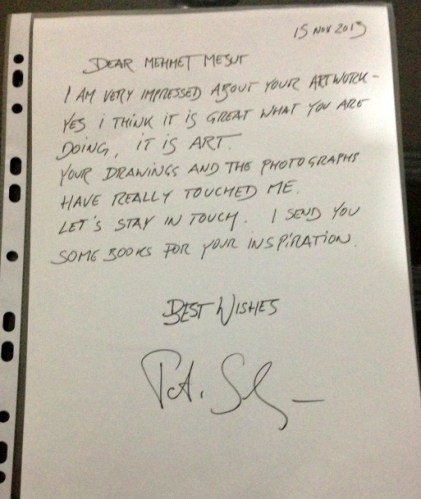 15 NOV 2013
DEAR MEHMET MESUT
I AM VERY IMPRESSED ABOUT YOUR ARTWORK -
YES I THINK IT IS GREAT WHAT YOU ARE
DOING, IT IS ART.
YOUR DRAWINGS AND THE PHOTOGRAPHS
HAVE REALLY TOUCHED ME.
LET'S STAY IN TOUCH. I SEND YOU
SOME BOOKS FOR YOUR INSPIRATION.
BEST WISHES